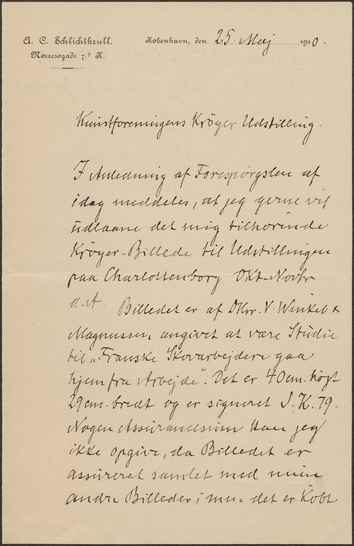 A. C. Schlichtkrull.
København, den 25 Maj 1910.
Nørresøgade 7.³ K.
Kunstforeningens Kröyer Udstilling.
I Anledning af Forespörgslen af
idag meddeles, at jeg gerne vil
udlaane det mig tilhörende
Kröyer-Billede til Udstillingen
paa Charlottenborg Okt-Novbr
d.A Billedet er af DHrr. V. Winkel &
Magnussen angivet at være Studie
til "Franske Skovarbejdere gaa
hjem fra Arbejde". Det er 40 cm. högt
29 cm. bredt og er signeret S.K. 79.
Nogen Assurancesum kan jeg
ikke opgive, da Billedet er
assureret samlet med mine
andre Billeder; det er Köbt